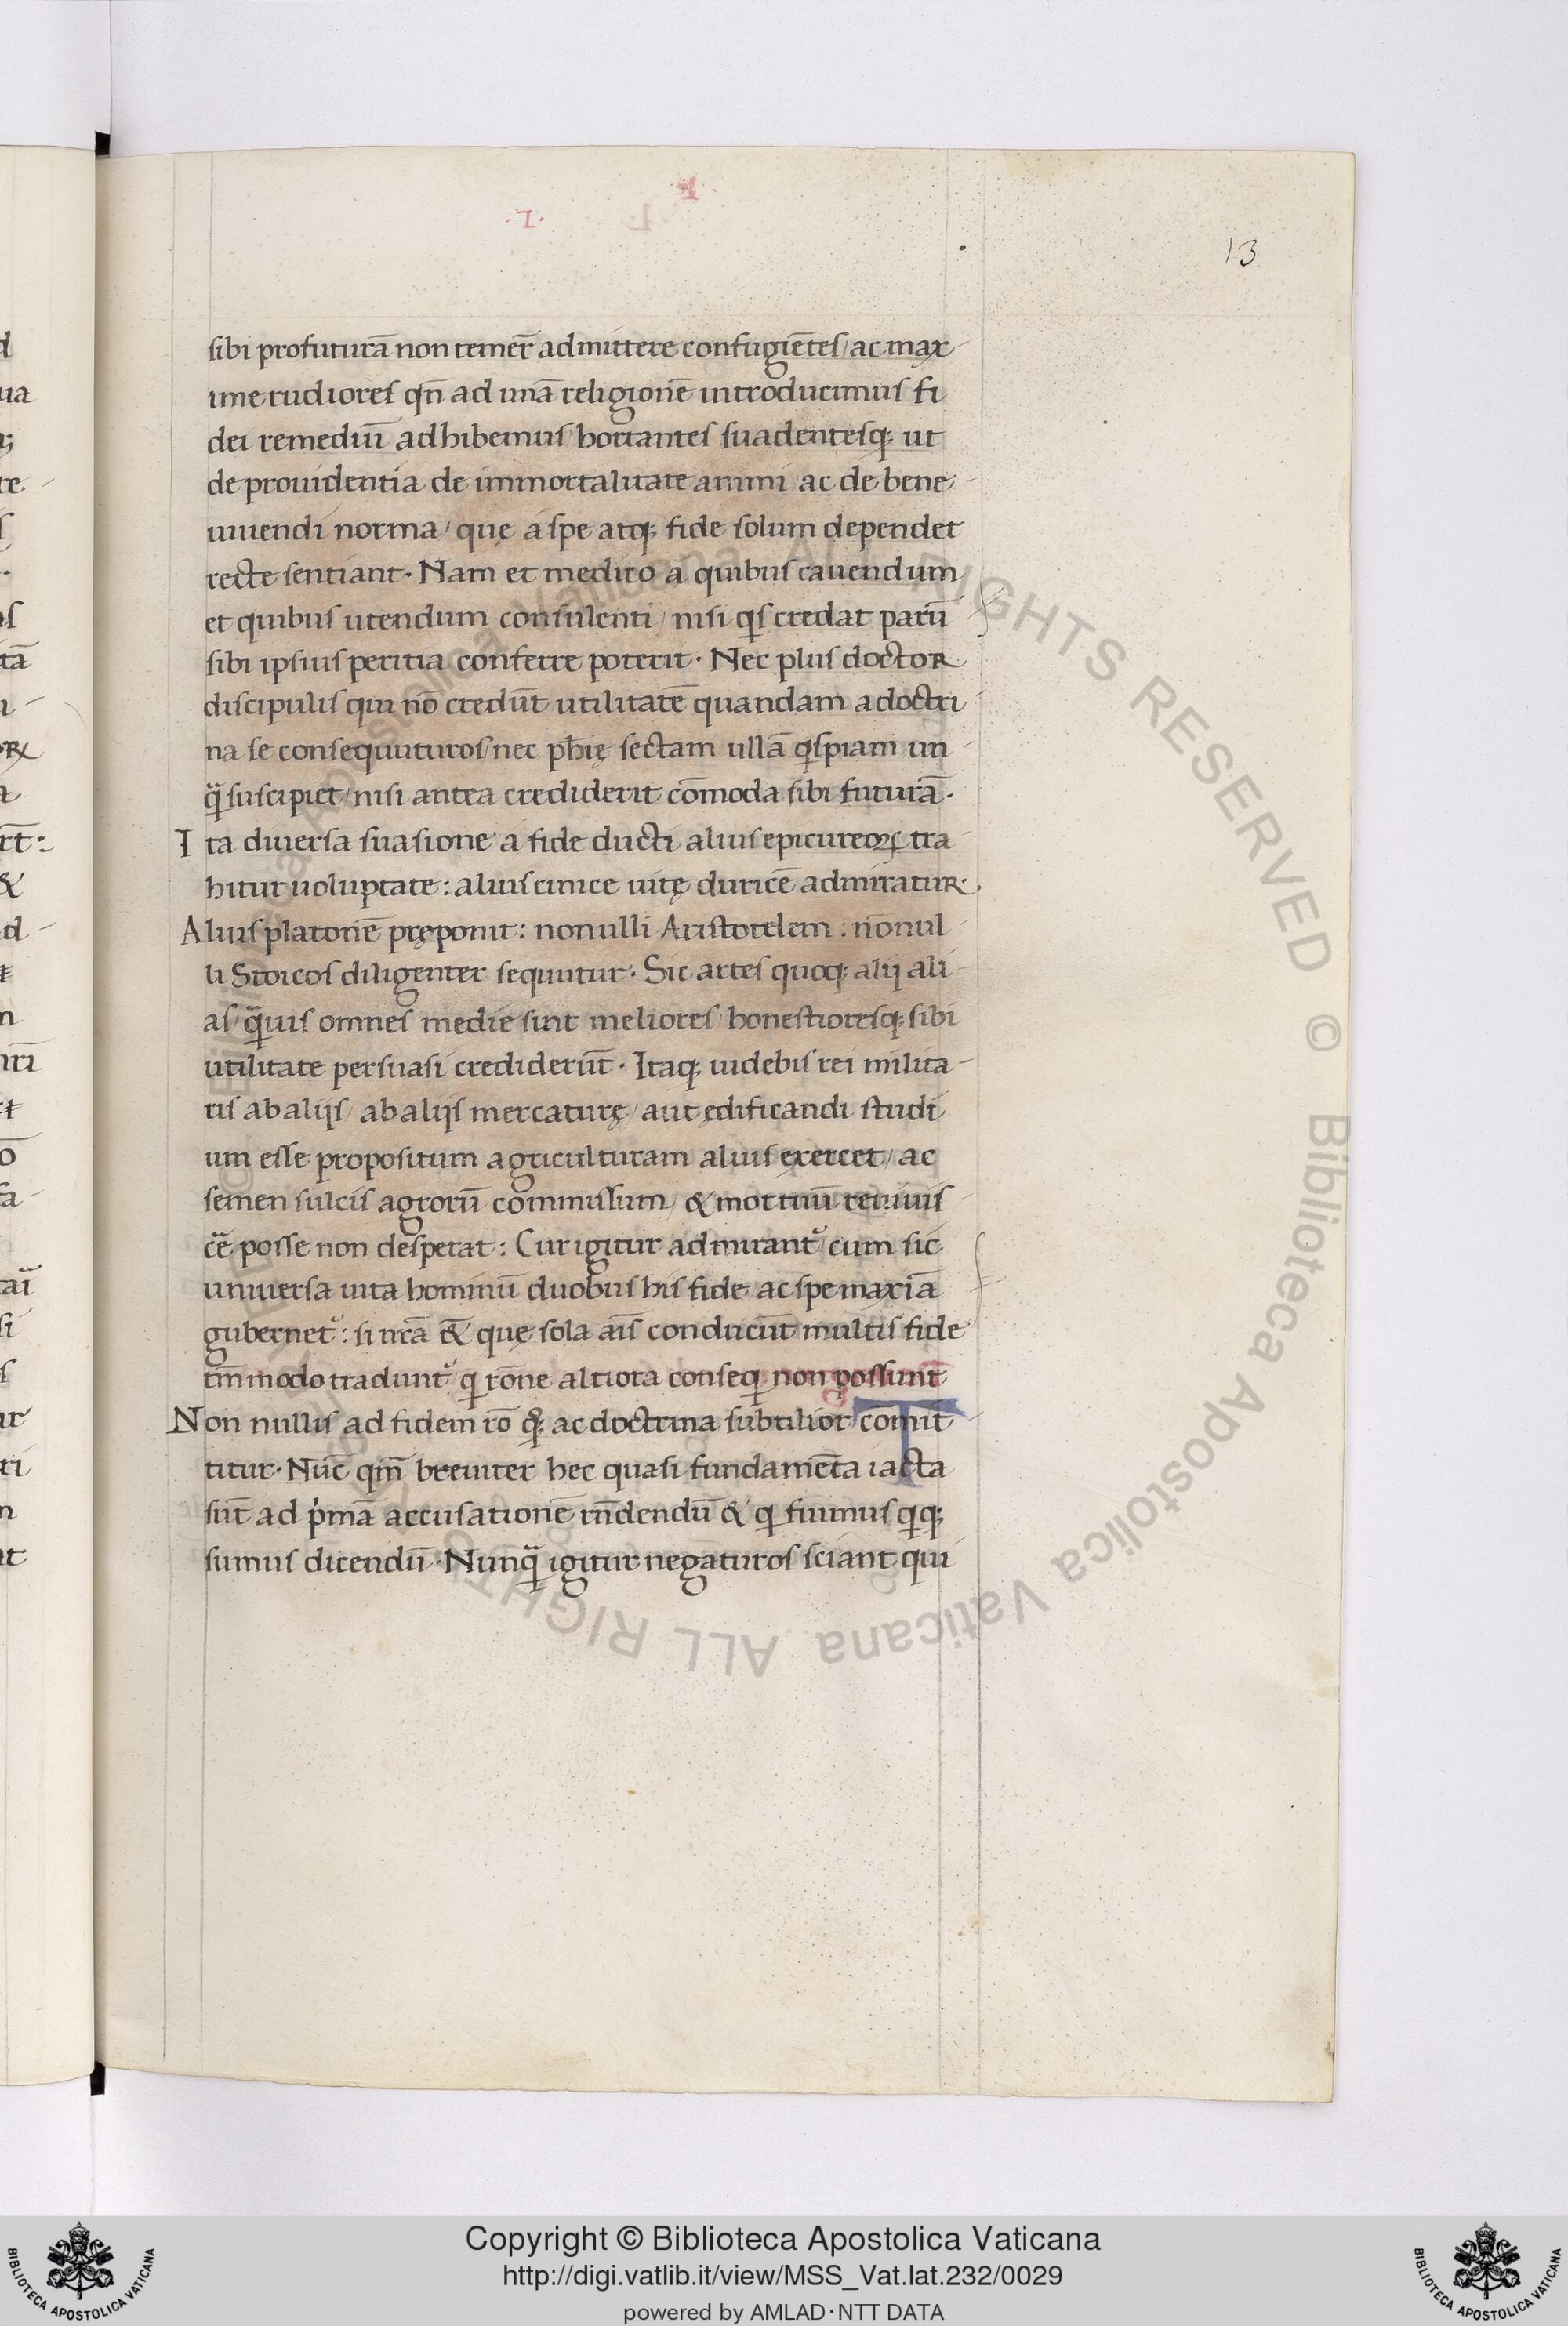 .I.
13
sibi profuturā non temer̄ admittere confugiētes/ ac max
ime rudiores qn̄ ad unā religionē introducimus fi
dei remediū adhibemus hortantes suadentesq; ut
de prouidentia de immortalitate animi ac de bene
uiuendi norma/ quę a spe atq; fide solum dependet
recte sentiant. Nam et medico a quibus cauendum
et quibus utendum consulenti/ nisi qs credat parū
sibi ipsius peritia conferre poterit. Nec plus doctor
discipulis qui nō credūt utilitatē quandam a doctri
na se consequuturos/ nec ph̄ię sectam ullā qspiam un
q̄ suscipiet/ nisi antea crediderit cōmoda sibi futurā.
Ita diuersa suasione a fide ducti alius epicureoꝝ tra
hitur uoluptate: alius cinice uitę duricē admiratur.
Alius platonē pręponit: nonulli Aristotelem: nōnul
li Stoicos diligenter sequntur. Sic artes quoq; alij ali
as/ q̄uis omnes medie sint meliores honestioresq; sibi
utilitate persuasi crediderūt. Itaq; uidebis rei milita
ris ab alijs/ ab alijs mercaturę/ aut ędificandi studi
um esse propositum agriculturam alius exercet/ ac
semen sulcis agrorū commissum/ & mortuū reuiuis
cē posse non desperat: Cur igitur admirant᷑ cum sic
uniuersa uita hominū duobus his fide ac spe maxīa
gubernet᷑: si nr̄ā & quę sola aīs conducūt multis fide
tm̄modo tradunt᷑ q rōne altiora conseq non possunt
Non nullis ad fidem rō q; ac doctrina subtilior cōmit
titur. Nūc qm̄ breuiter hec quasi fundamēta iacta
sūt ad pͥmā accusationē rn̄dendū & q fuimus qq;
sumus dicendū. Nunq̄ igitur negaturos sciant qui
© Biblioteca Apostolica Vaticana ALL RIGHTS RESERVED
Copyright © Biblioteca Apostolica Vaticana
http://digi.vatlib.it/view/MSS_Vat.lat.232/0029
powered by AMLAD·NTT DATA
BIBLIOTECA APOSTOLICA VATICANA
BIBLIOTECA APOSTOLICA VATICANA